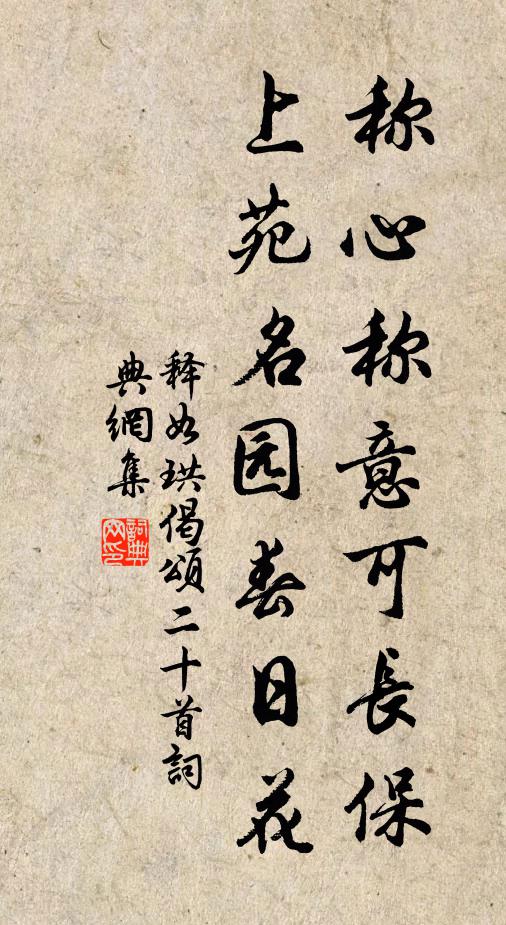 称心称意可長保
上苑名园春日花
释如珙偈頌二十首詞
典網集
詞典网印